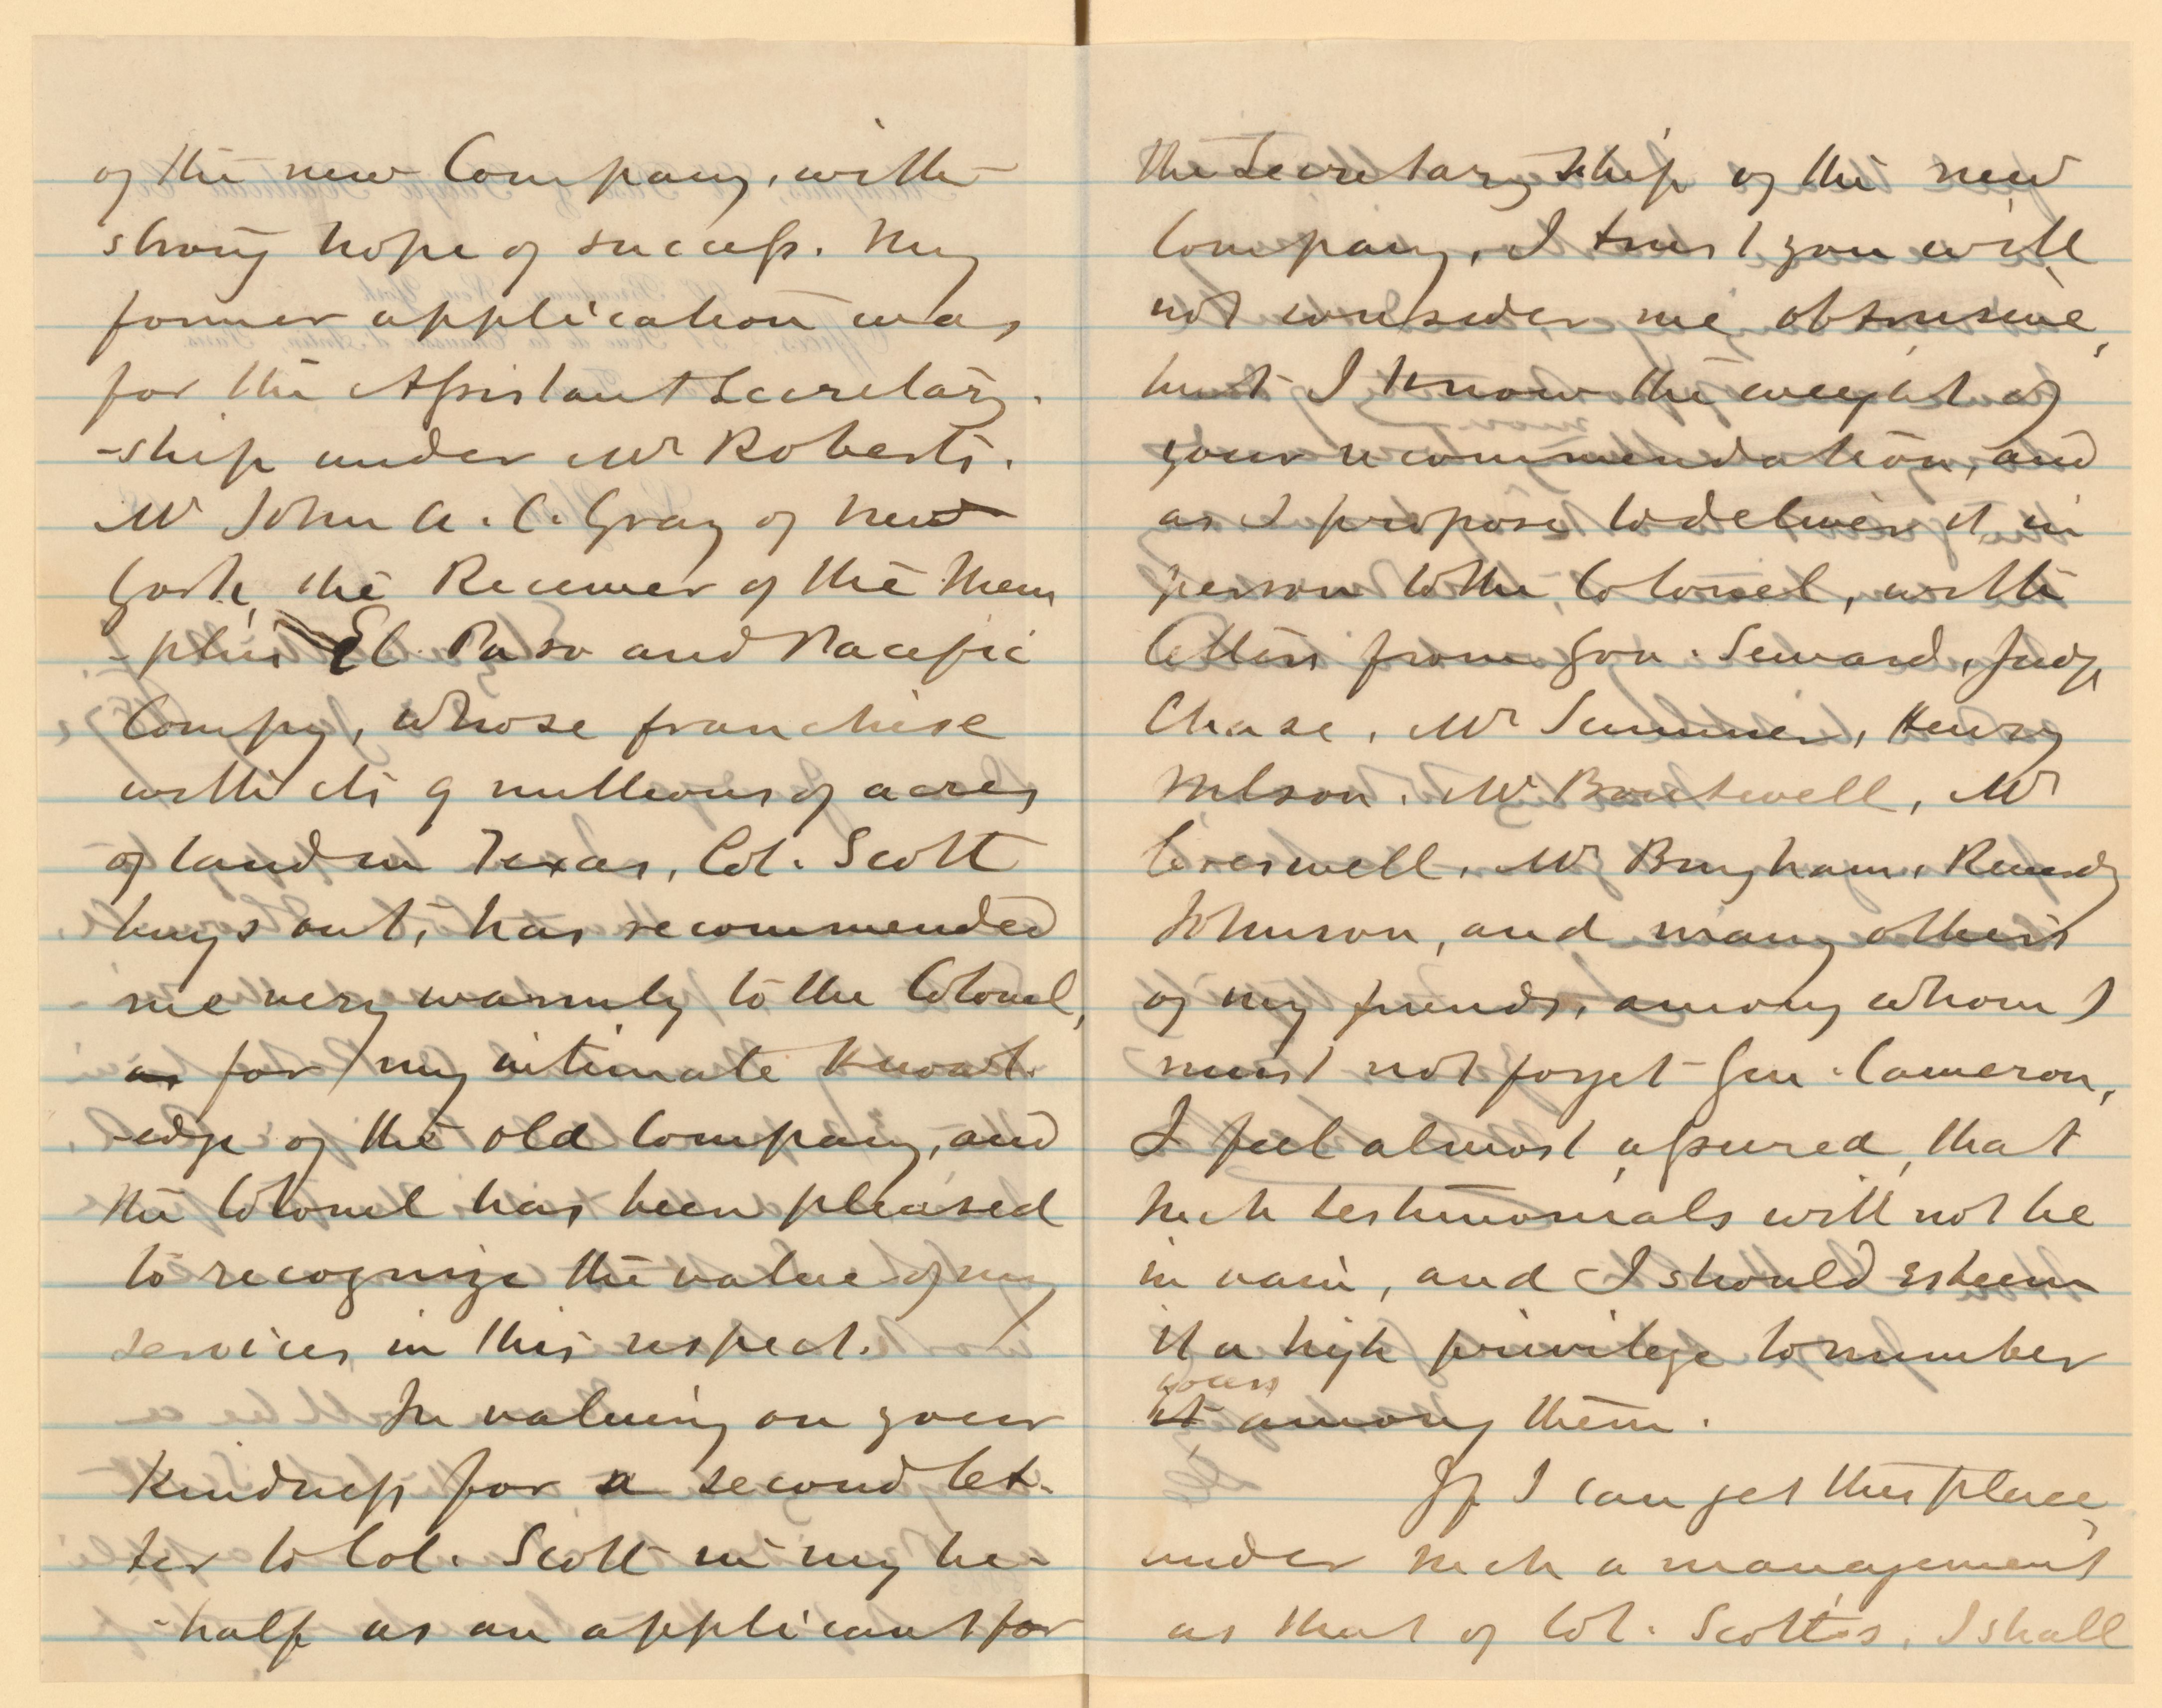 of the new Company, with
strong hope of success. My
former application was
for the Assistant Secretary.
-ship under Mr Roberts.
Mr John A. C. Gray of New
York, the Receiver of the Mem
-phis El Paso and Pacific
Compy, whose franchise
with its 9 millions of acres
of land in Texas, Col. Scott
buys out, has recommended
me very warmly to the Colonel,
as for my intimate knowl.
-edge of the old Company, and
the Colonel has been pleased
to recognize the value of my
services in this respect.
In valuing on your
kindness for a second let-
ter to Col. Scott in my be-
-half as an applicant for
the Secretaryship of the new
Company, I trust you will
not consider me obtrusive,
but I know the weight of
your recommendation, and
as I propose to deliver it in
person to the Colonel, with
letters from Gov. Seward, Judge
Chase, Mr Sumner, Henry
Wilson, Mr Boutwell, Mr
Creswell, Mr Bingham, Reverdy
Johnson, and many others
of my friends, among whom I
must not forget Gen. Cameron,
I feel almost assured, that
such testimonials will not be
in vain, and I should esteem
it a high privilege to number
yours
it among them.
If I can get this place,
under such a management
as that of Col. Scott's, I shall